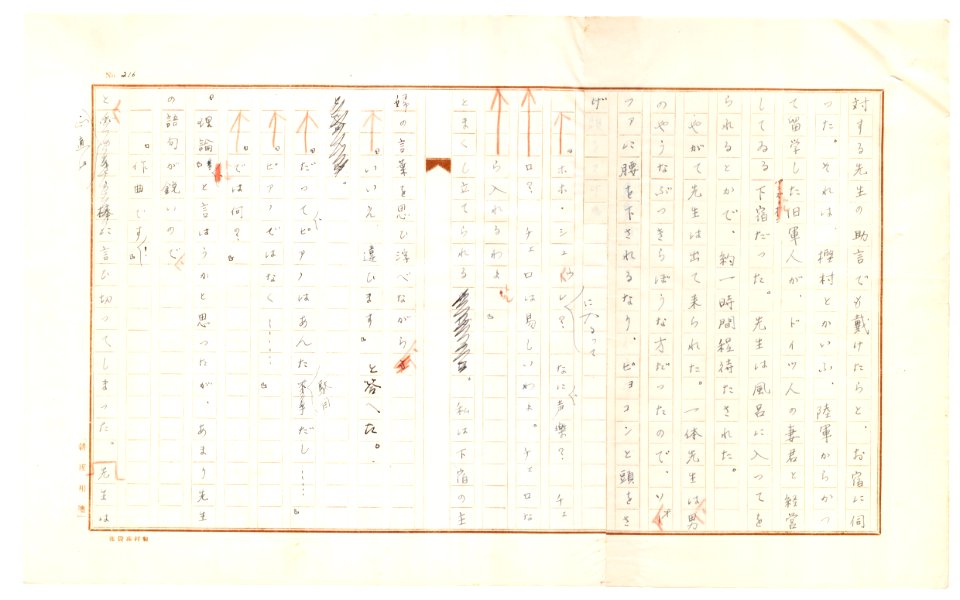 No. 216
対する先生の助言でも戴けたらと、お宿に伺
つた。それは、樫村とかいふ、陸軍からかつ
て留学した旧軍人が、ドイツ人の妻君と経営
してゐる下宿だつた。先生は風呂に入つてを
られるとかで、約一時間程待たされた。
やがて先生は出て来られた。一体先生は男
のやうなぶつきらぼうな方だつたので、ソ
ファに腰を下されるなり、ピョコンと頭をさ
げ
に入るつて
ロ？　チェロは易しいわよ。チェロな
ら入れるわよ』
とまくし立てられる　　　。私は下宿の主
婦の言葉を思ひ浮べながら
『いいえ、違ひます』と答へた。
『だつてピアノはあんた　だし……』
『ピアノではなく……』
『では何？』
『理論　と言はうかと思つたが、あまり先生
の語句が鋭いので
『作曲です！』
と　　に言ひ切つてしまつた。先生は